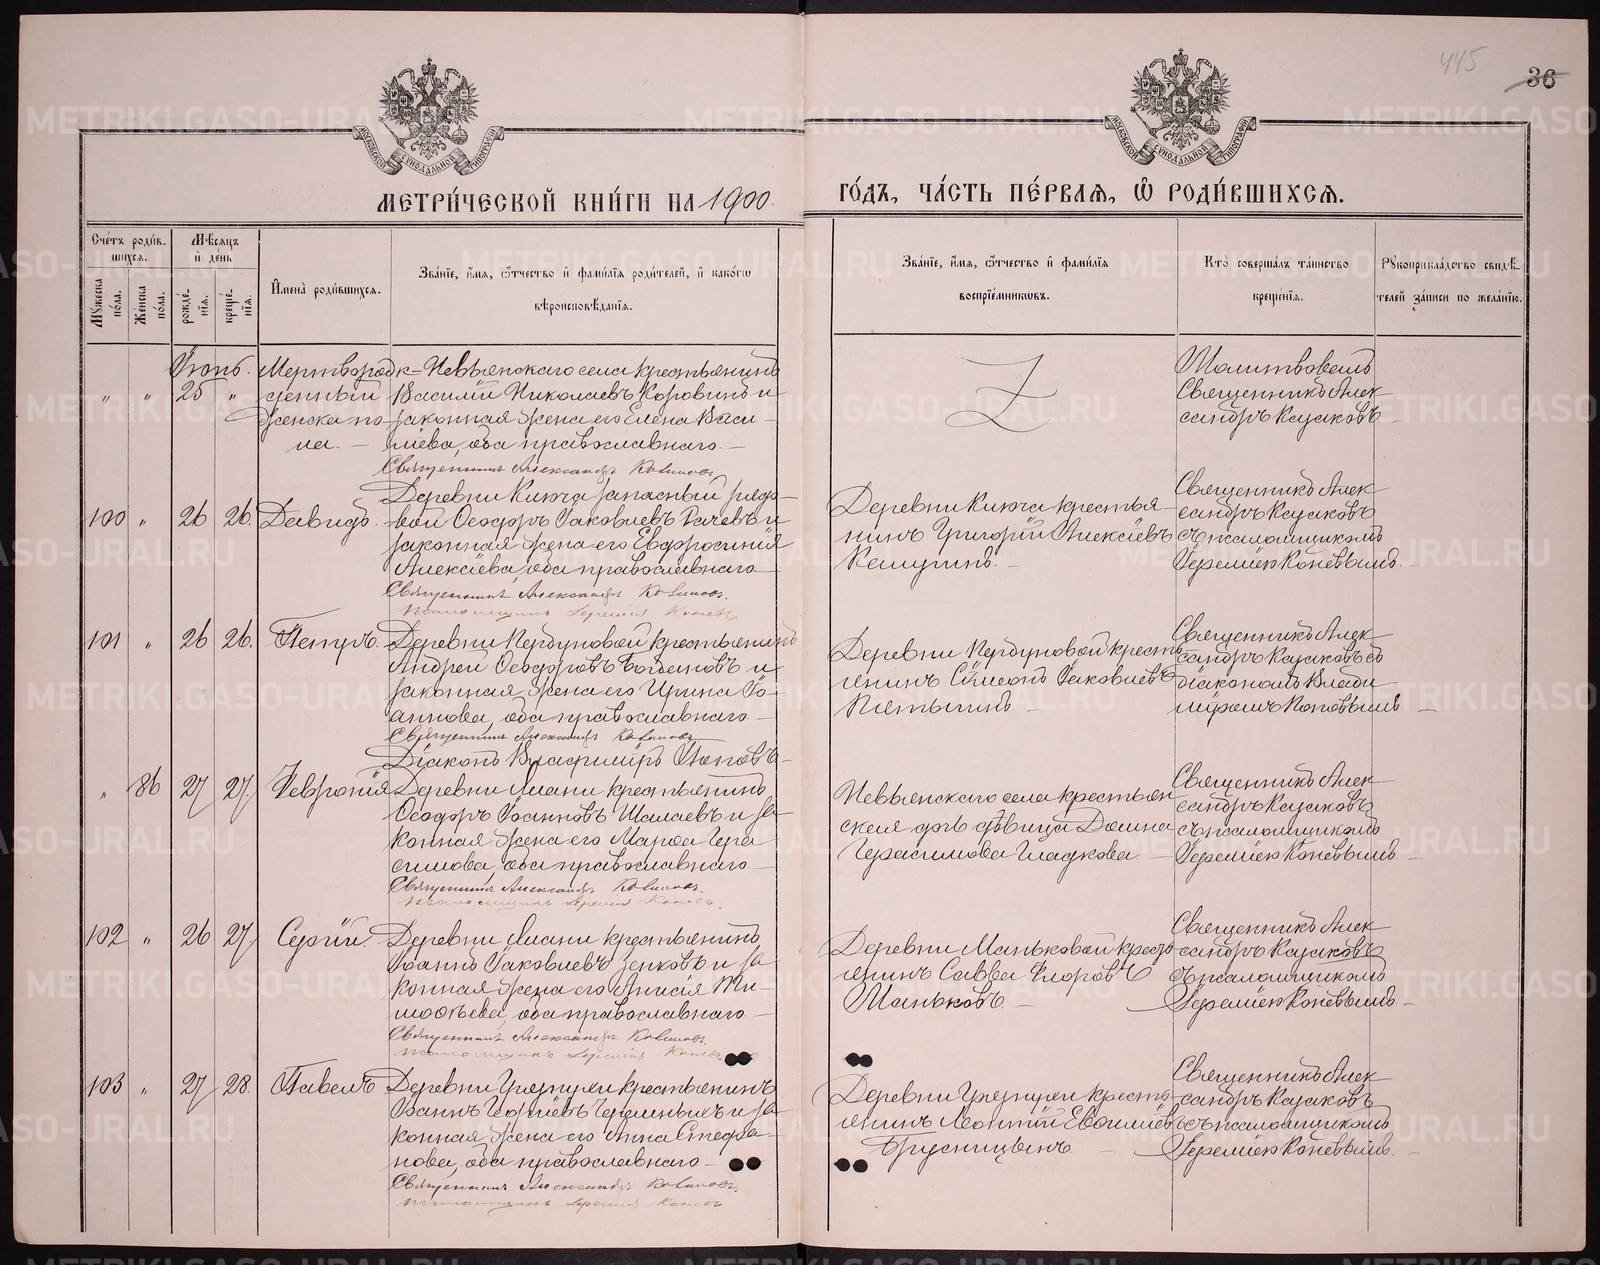 445
36
МОСКОВСКОЙ СѴНОДАЛЬНОЙ ТИПОГРАФІИ
МОСКОВСКОЙ СѴНОДАЛЬНОЙ ТИПОГРАФІИ
МЕТРИ́ЧЕСКОЙ КНИ́ГИ НА 1900
ГО́ДЪ, ЧА́СТЬ ПЕ́РВАЯ, Ѡ РОДИ́ВШИХСЯ.
Сче́тъ роди́в-
шихся.
Мꙋ́жеска по́ла.
Же́нска по́ла.
Мѣ́сяцъ и де́нь
рожде́-
нїя.
креще́-
нїя.
И҆мена̀ роди́вшихся.
Зва́нїе, и҆́мя, ѻ҆́тчество и҆ фами́лїя роди́телей, и҆ како́гѡ
вѣроисповѣ́данїя.
Зва́нїе, и҆́мя, ѻ҆́тчество и҆ фами́лїя
воспрїе́мникѡвъ.
Кто̀ соверша́лъ та́инство
креще́нїя.
Рꙋкоприкла́дство свидѣ́-
телей за́писи по жела́нїю.
Іюнь.
" " 25 "
Мертворож-
денный
Женска по-
ла. —
Невьянскаго села крестьянинъ
Василій Николаевъ Коровинъ и
законная жена его Елена Васи-
ліева, оба православнаго. —
Священникъ Александръ
Молитвовалъ
Священникъ Алек
сандръ Казаковъ
100 " 26 26. Давидъ.
Деревни Ключа запасный рядо-
вой Ѳеодоръ Іаковлевъ Рачевъ и
законная жена его Евфросинія
Алексіева, оба православнаго
Священникъ Александръ
Псаломщикъ Іеремія Коневъ
Деревни Ключа крестья-
нинъ Григорій Алексіевъ
Священникъ Алек
сандръ Казаковъ
съ псаломщикомъ
Іереміею Коневымъ.
101 " 26 26. Петръ.
Деревни крестьянинъ
Андрей Ѳеодоровъ Богдановъ и
законная жена его Ирина Іо-
аннова, оба православнаго —
Священникъ Александръ
Діаконъ Владиміръ Поповъ —
Деревни кресть
янинъ Сѵмеонъ Іаковлевъ
Пятыгинъ —
Священникъ Алек-
сандръ Казаковъ съ
діакономъ Влади
міромъ Поповымъ —
" 86 27 27. Феѵронія
Деревни Ялани крестьянинъ
Ѳеодоръ Іоанновъ Шалаевъ и за
конная жена его Марѳа Гера
симова, оба православнаго —
Священникъ Александръ
Псаломщикъ Іеремія Коневъ.
Невьянскаго села крестьян
ская дочь дѣвица Домна
Герасимова Гладкова. —
Священникъ Алек
сандръ Казаковъ
съ псаломщикомъ
Іереміею Коневымъ. —
102 " 26 27. Сергій.
Деревни Ялани крестьянинъ
Іоаннъ Іаковлевъ Зенковъ и за
конная жена его Анисія Ти-
моѳеева, оба православнаго —
Священникъ Александръ
Псаломщикъ Іеремія Коневъ
Деревни Маньковой кресть
янинъ Савва Флоровъ
Маньковъ. —
Священникъ Алек
сандръ Казаковъ
съ псаломщикомъ
Іереміею Коневымъ —
103 " 27 28. Павелъ
Деревни Грязнухи крестьянинъ
Іоаннъ Георгіевъ и за
конная жена его Анна Стефа-
нова, оба православнаго —
Священникъ Александръ
Псаломщикъ Іеремія Коневъ
Деревни Грязнухи кресть-
янинъ Леонтій Евѳиміевъ
Брусницынъ —
Священникъ Алек
сандръ Казаковъ
съ псаломщикомъ
Іереміею Коневымъ. —
METRIKI.GASO-URAL.RU